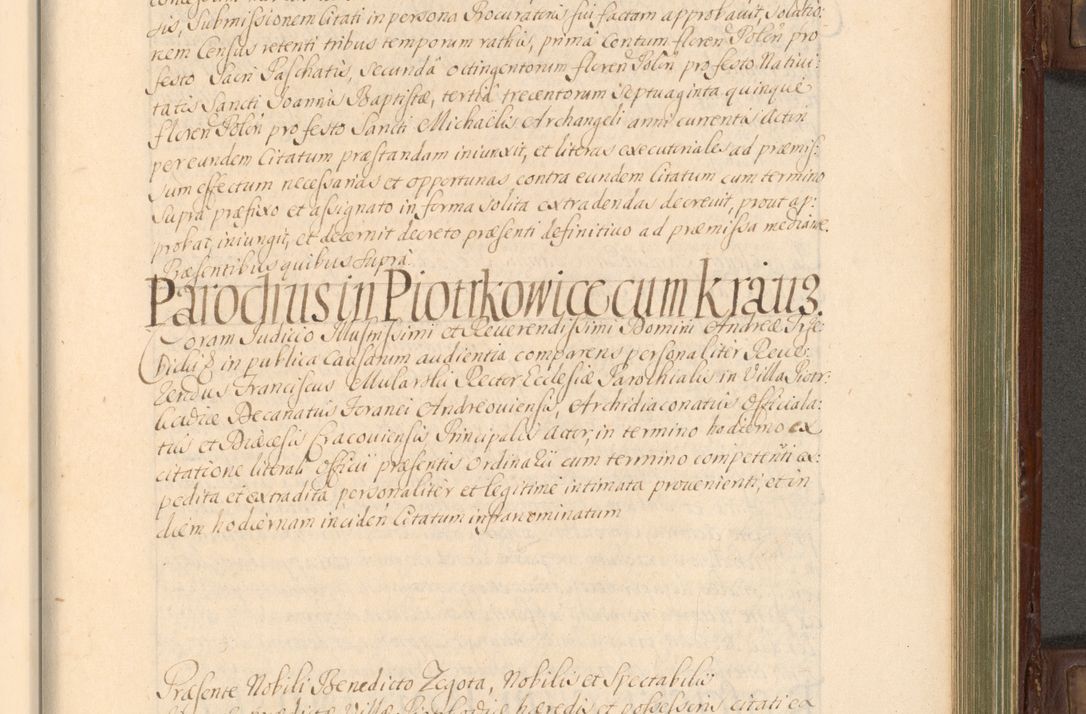 sis, Submissionem Citati in persona Procuratoris sui factam approbavit, solutio:
nem Census retenti tribus temporum rathis, prima Centum floren Polon pro
festo Sacri Paschatis, secunda octingentorum floren Polon pro festo Nativi:
tatis Sancti Joannis Baptistæ, tertia trecentorum septuaginta quinque
floren Polon pro festo Sancti Michaëlis Archangeli anni currentis Actori
per eundem Citatum præstandam iniunxit, et literas executoriales ad præmis:
sum effectum necessarias et opportunas contra eundem Citatum cum termino
supra præfixo et assignato in forma solita extradendas decrevit, prout ap:
probat, iniungit, et decernit decreto præsenti definitivo ad præmissa mediante.
Præsentibus quibus supra.
Parochus in Piotrkowice cum Kraus.
Coram Judicio Illustrissimi et Reverendissimi Domini Andreæ
in publica Causarum audientia comparens personaliter Reve:
rendus Franciscus Mularski Rector Ecclesiæ Parochialis in Villa Piotr:
kadiæ Decanatus Foranei Andreoviensis, Archidiaconatus Officiala:
tus et Diæcesis Cracoviensis, Principalis Actor, in termino hodierno ex
citatione literali Officii præsentis Ordinarii cum termino competenti ex:
pedita et extradita personaliter et legitime intimata provenienti, et in
diem hodiernam inciden Citatum infranominatum
Præsente Nobili Benedicto Zegota, Nobilis et Spectabilis
Villæ hæredis et possessoris citati ea